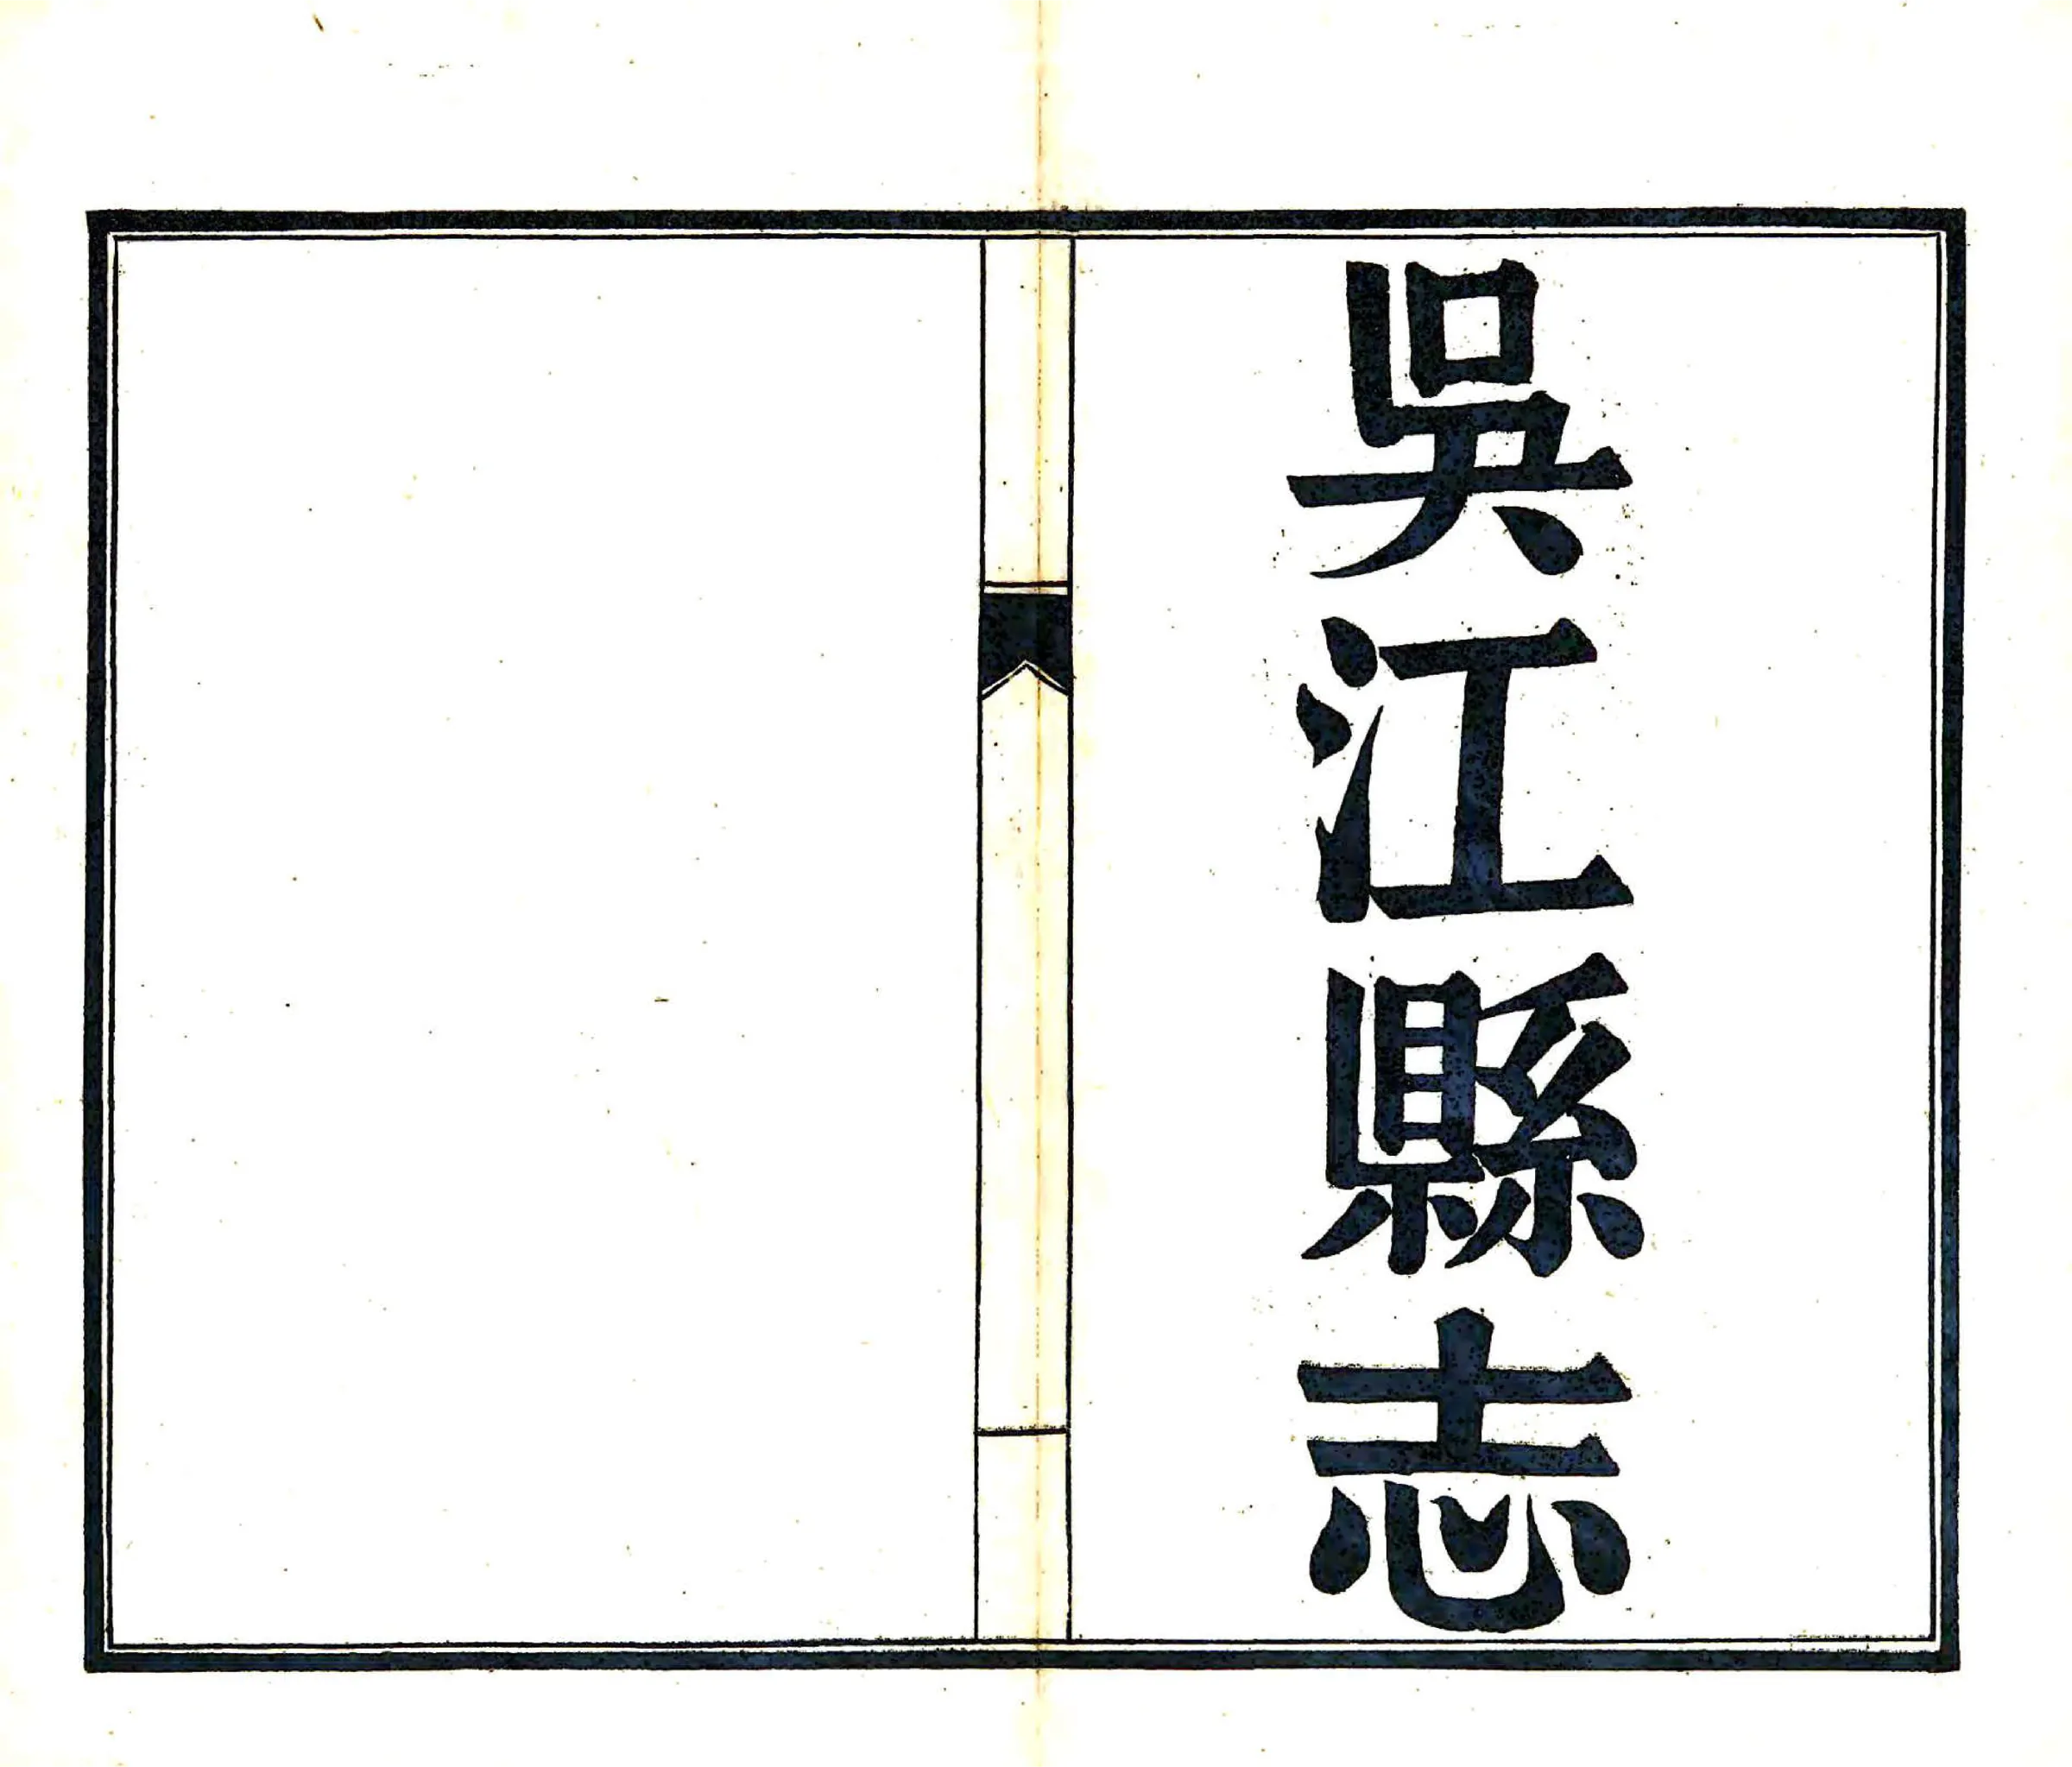 吳江縣志